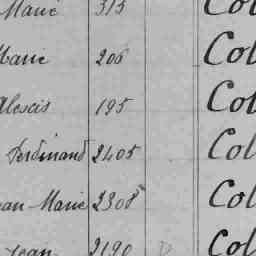 Marie 315 Col
Marie 206 Col
Alexis 195 Col
Ferdinand 2405 Col
Jean-Marie 2308 Col
Jean 2190 Col